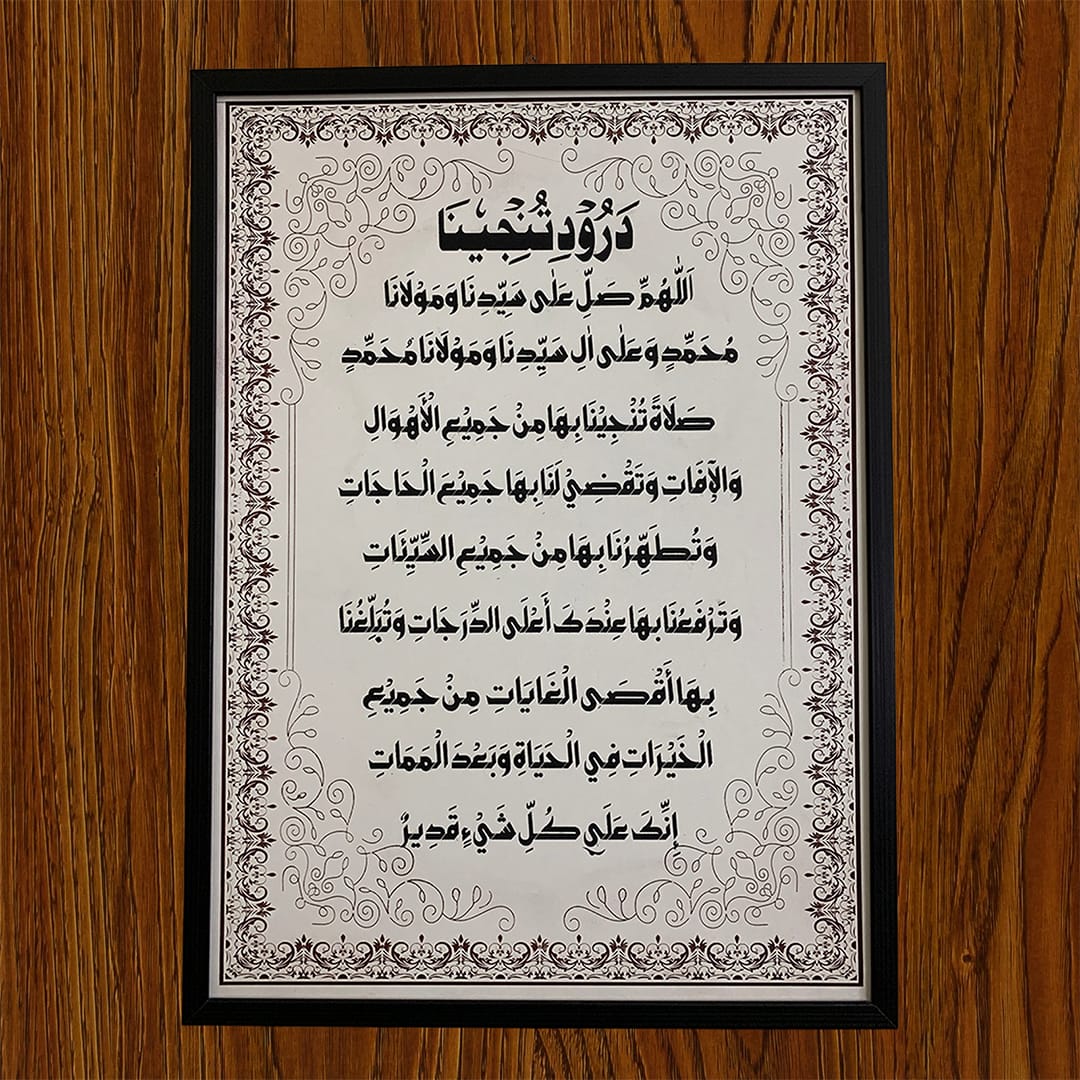 دَرُوْدِ تُنْجِيْنَا
اَللّٰهُمَّ صَلِّ عَلٰى سَيِّدِنَا وَمَوْلَانَا
مُحَمَّدٍ وَعَلٰى اٰلِ سَيِّدِنَا وَمَوْلَانَا مُحَمَّدٍ
صَلَاةً تُنْجِيْنَا بِهَا مِنْ جَمِيْعِ الْأَهْوَالِ
وَالْآفَاتِ وَتَقْضِيْ لَنَا بِهَا جَمِيْعَ الْحَاجَاتِ
وَتُطَهِّرُنَا بِهَا مِنْ جَمِيْعِ السَّيِّئَاتِ
وَتَرْفَعُنَا بِهَا عِنْدَكَ أَعْلَى الدَّرَجَاتِ وَتُبَلِّغُنَا
بِهَا أَقْصَى الْغَايَاتِ مِنْ جَمِيْعِ
الْخَيْرَاتِ فِي الْحَيَاةِ وَبَعْدَ الْمَمَاتِ
إِنَّكَ عَلَى كُلِّ شَيْءٍ قَدِيرٌ